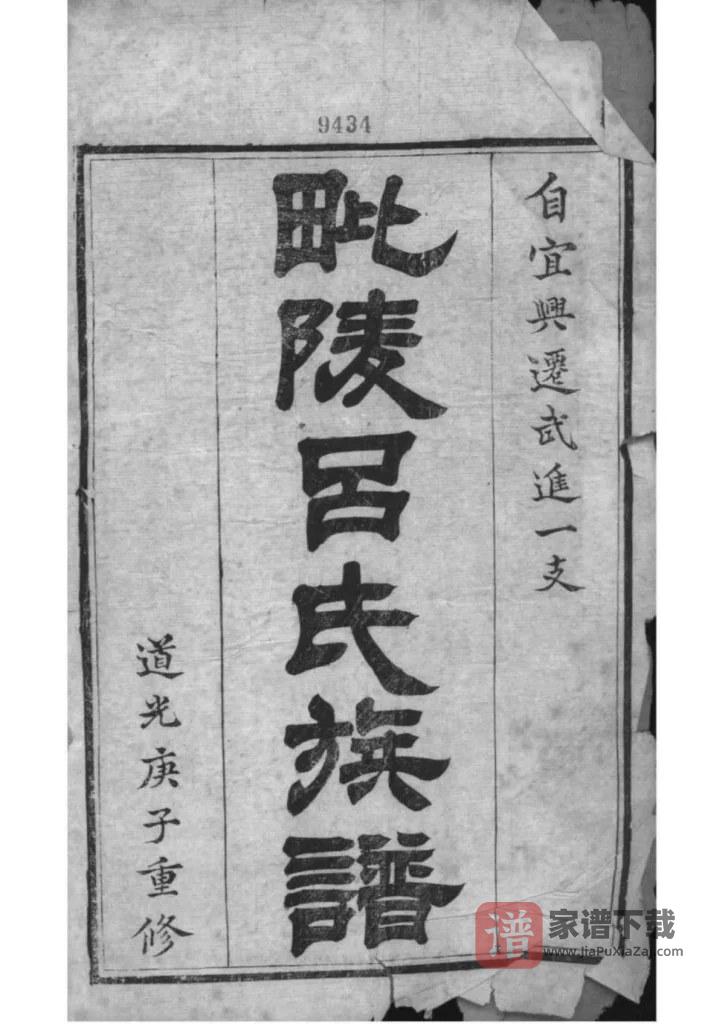 9434
自宜興遷武進一支
毗陵呂氏族譜
道光庚子重修
谱 家谱下载
www.JiaPuXiaZai.com